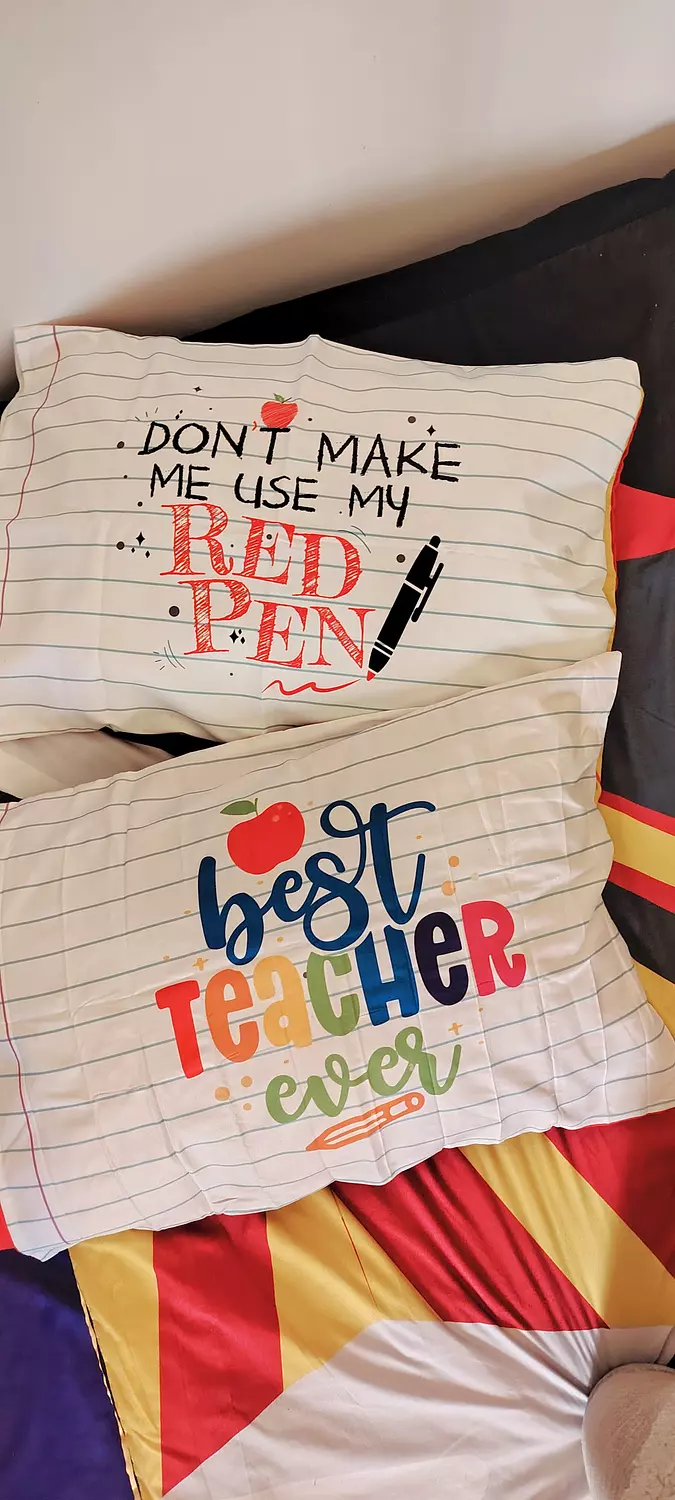 DON'T MAKE
ME USE MY
RED
PEN
best
TEACHER
ever